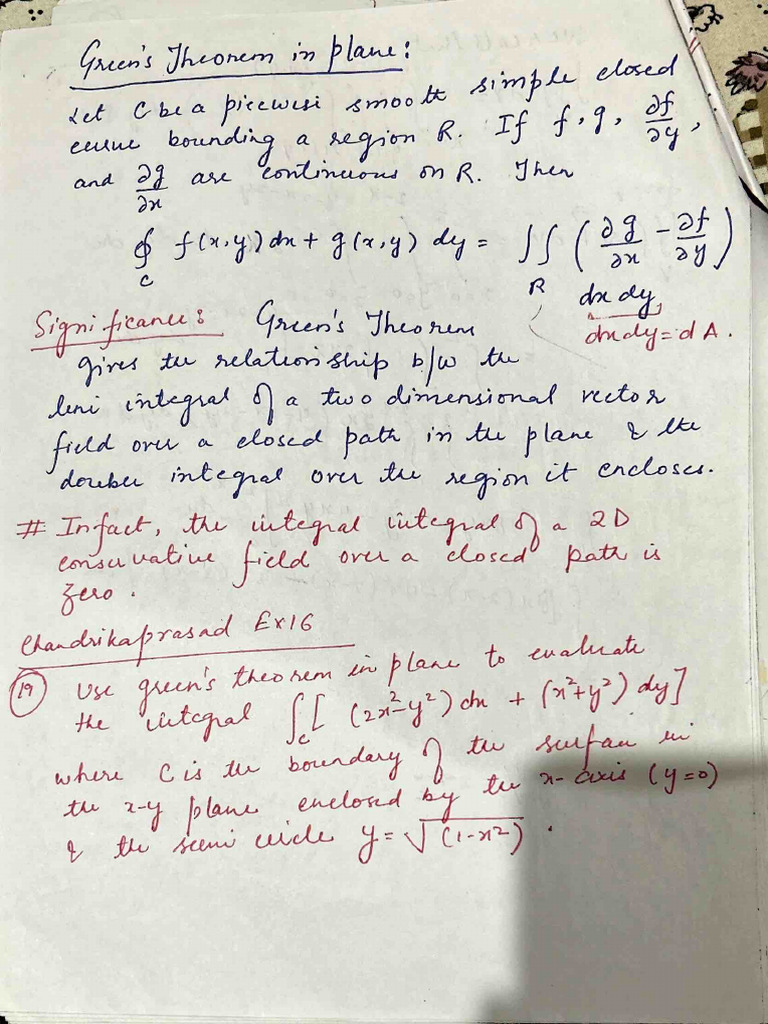 Green's Theorem in plane:
Let C be a piecewisi smooth simple closed
curve bounding a region R. If f, g, ∂f/∂y,
and ∂g/∂x are continuous on R. Then
∮_C f(x,y) dx + g(x,y) dy = ∬_R (∂g/∂x - ∂f/∂y)
dx dy
dxdy = dA.
Significance: Green's Theorem
gives the relationship b/w the
line integral of a two dimensional vector
field over a closed path in the plane & the
double integral over the region it encloses.
# Infact, the integral integral of a 2D
conservative field over a closed path is
zero.
Chandrikaprasad Ex16
(19) Use green's theorem in plane to evaluate
the integral ∫_C [ (2x²-y²) dx + (x²+y²) dy]
where C is the boundary of the surface in
the x-y plane enclosed by the x-axis (y=0)
& the semi circle y = √(1-x²) .